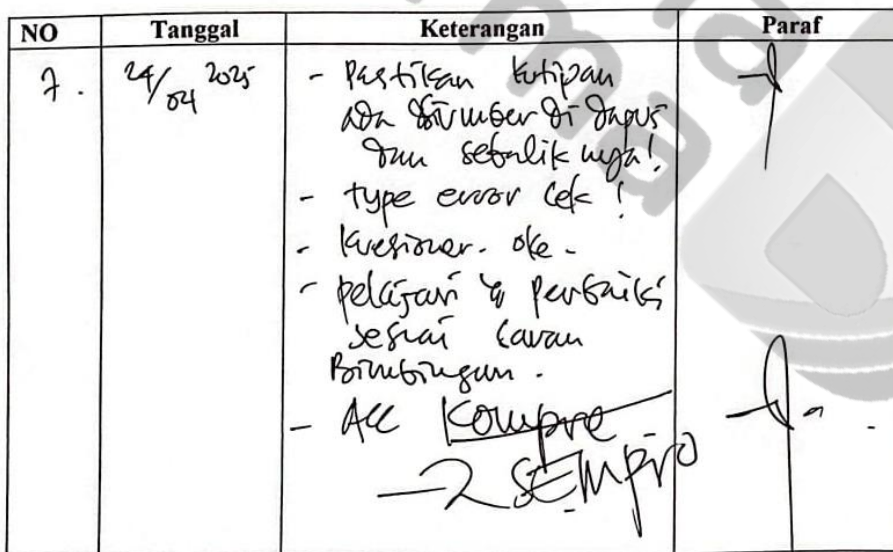 NO Tanggal Keterangan Paraf
7. 24/04 2025 - Pastikan kutipan
ada sumber di dapus
dan sebaliknya!
- type error cek!
- kuesioner. oke.
- pelajari & perbaiki
sesuai saran
Bimbingan.
- Acc Kompre
→ SEMPRO